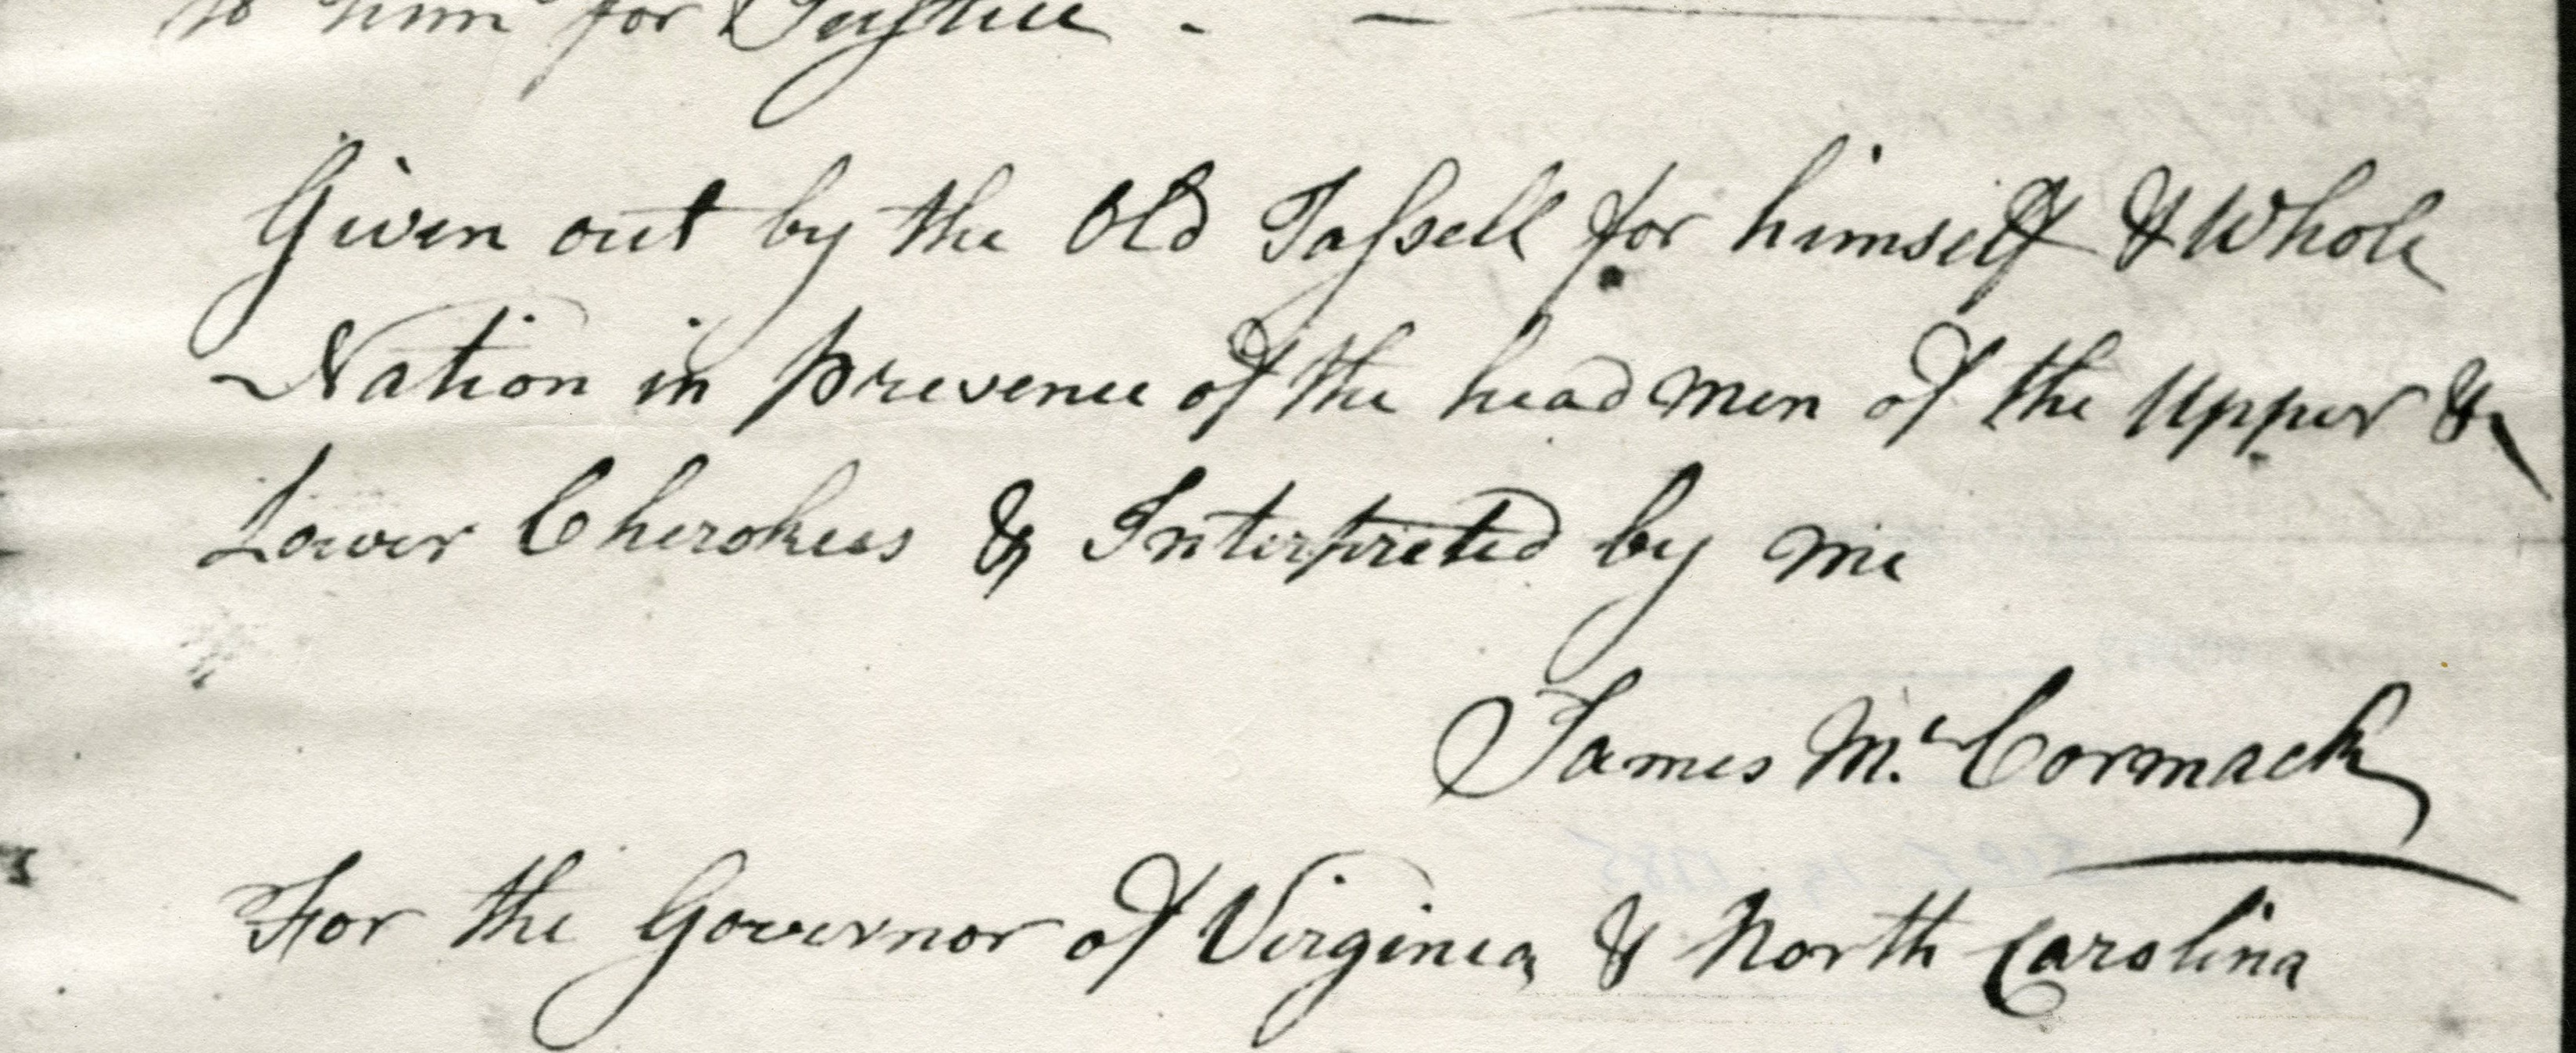 to him for Justice - —
Given out by the Old Tassell for himself & Whole
Nation in presence of the head men of the Upper &
Lower Cherokees & Interpreted by me
James Mc. Cormack
For the Governor of Virginia & North Carolina